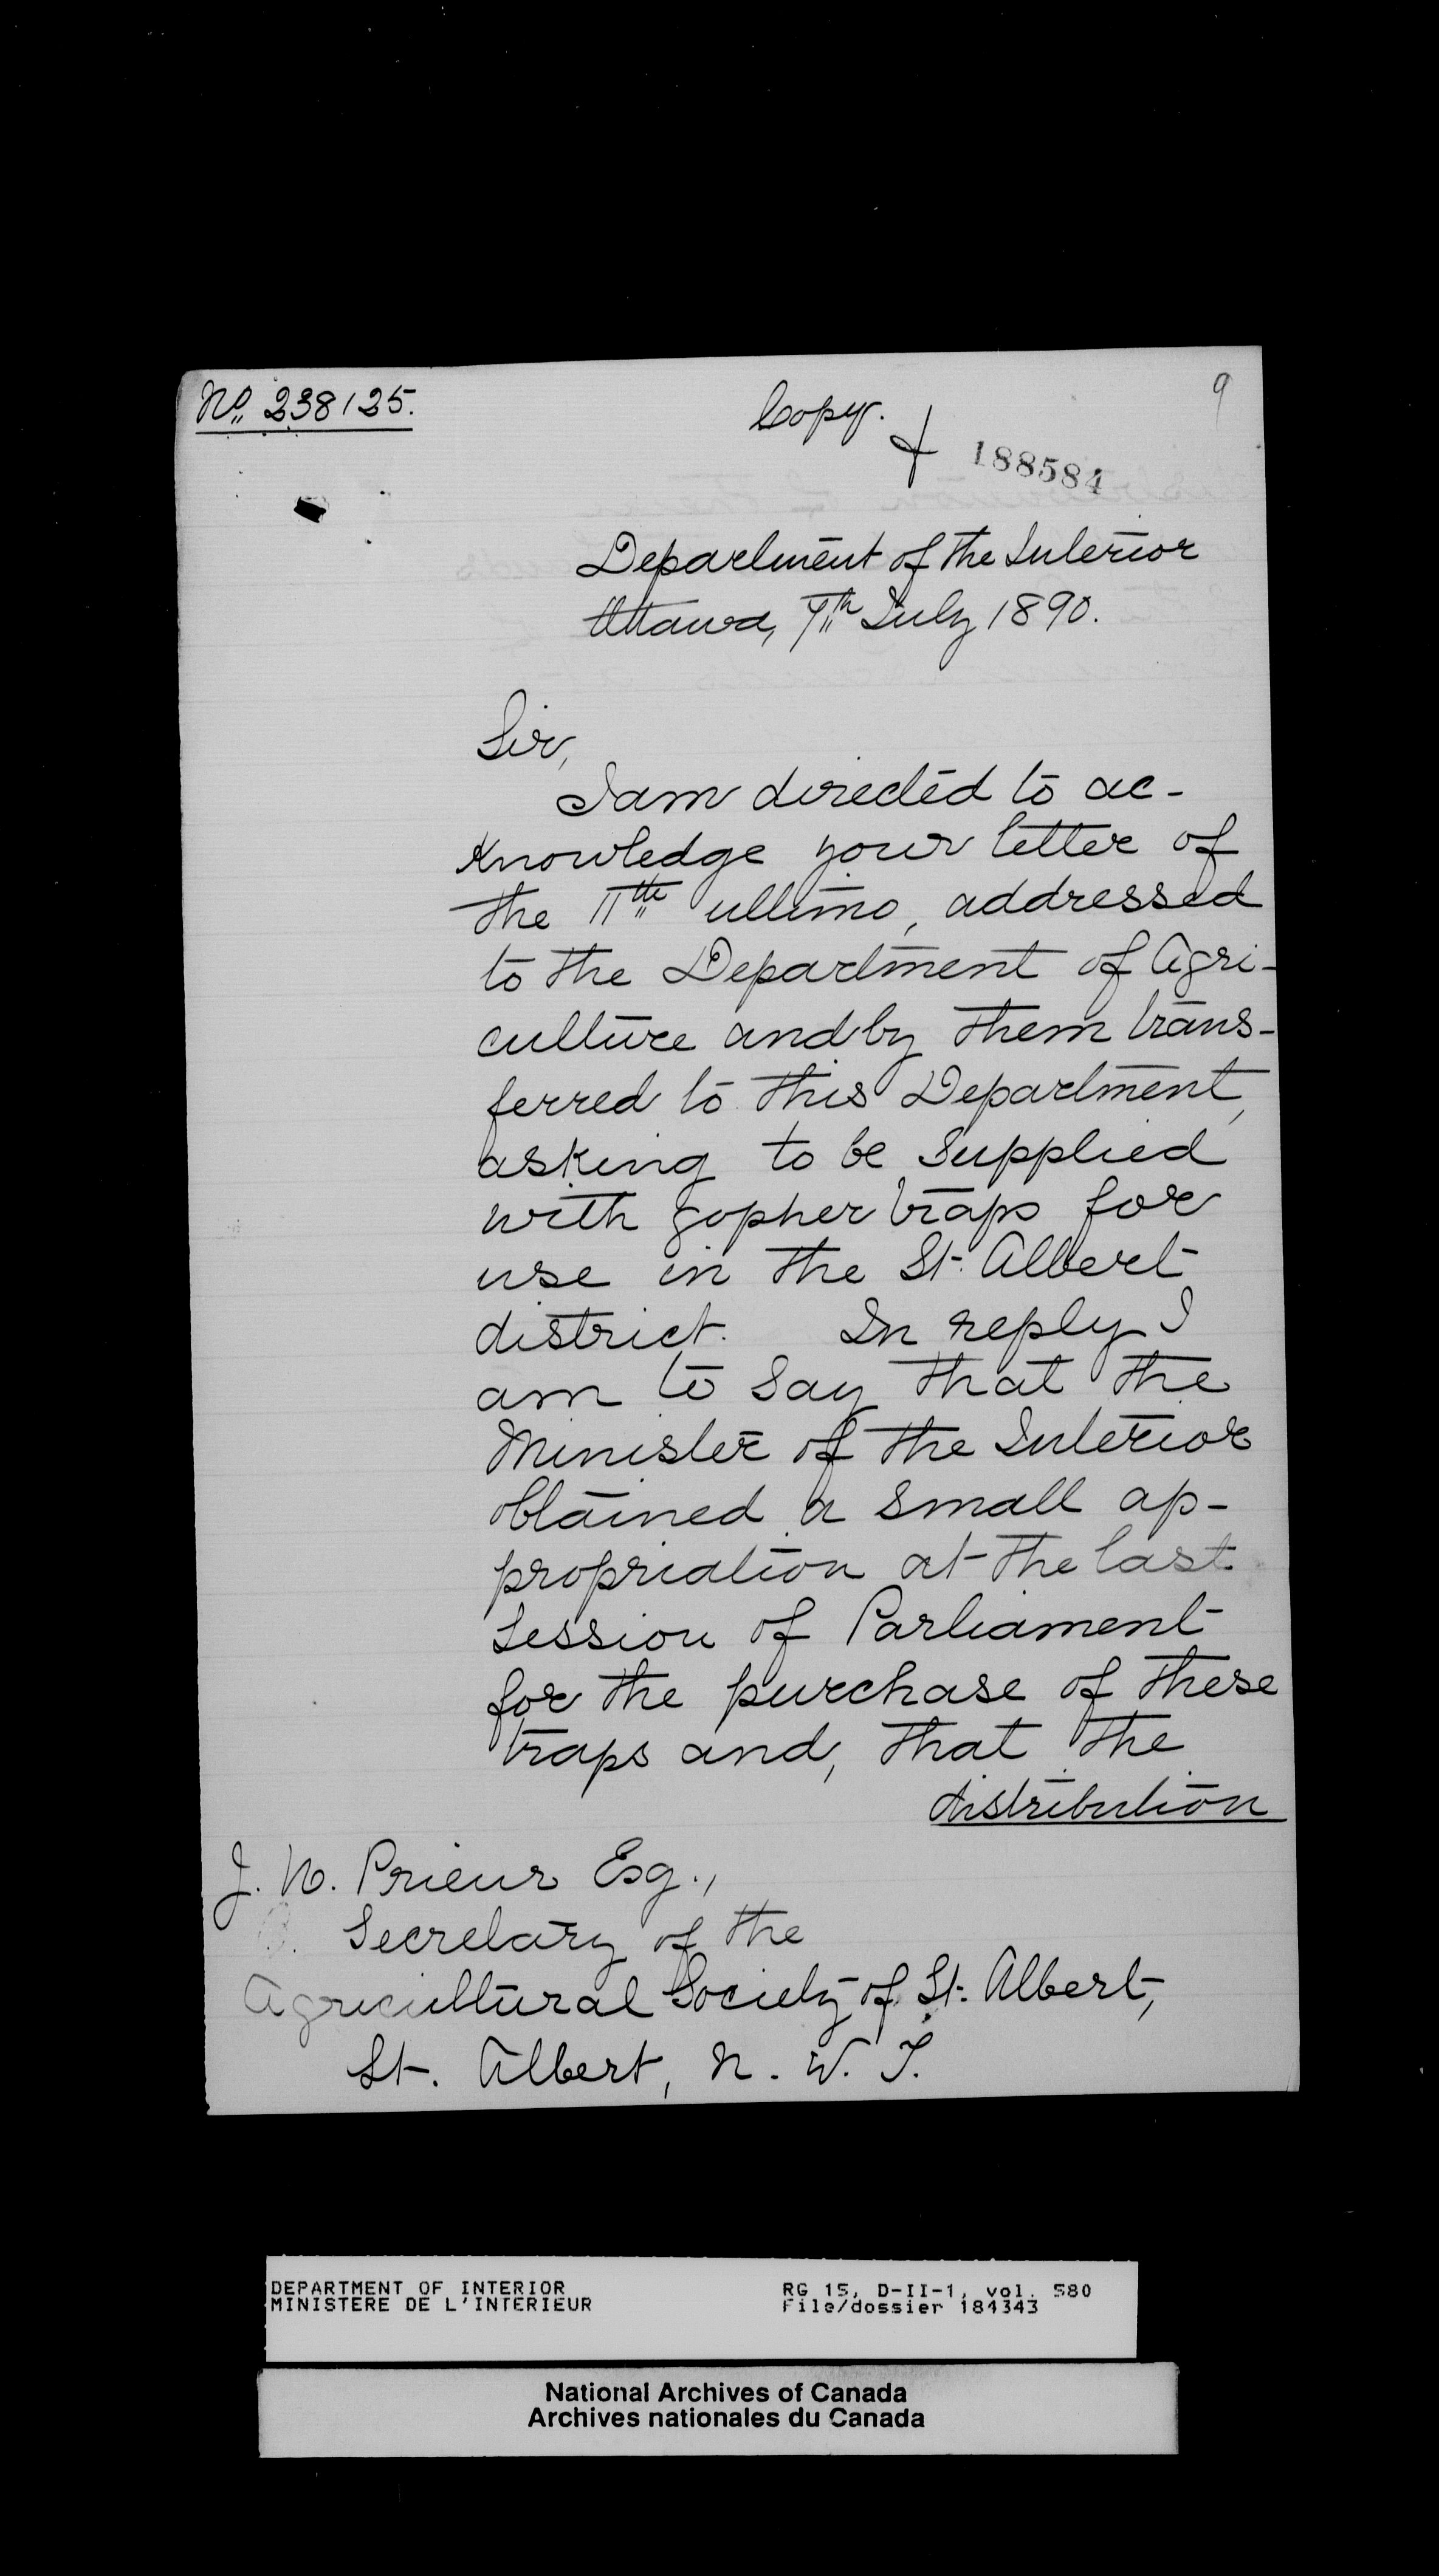 No. 238125.
Copy.
9
188584
Department of the Interior
Ottawa, 9th July 1890.
Sir,
I am directed to ac-
knowledge your letter of
the 11th ultimo, addressed
to the Department of Agri-
culture and by them trans-
ferred to this Department,
asking to be supplied
with gopher traps for
use in the St. Albert
district. In reply I
am to say that the
Minister of the Interior
obtained a small ap-
propriation at the last
Session of Parliament
for the purchase of these
traps and, that the
distribution
J. N. Prieur Esq.,
Secretary of the
Agricultural Society of St. Albert,
St. Albert, N. W. T.
DEPARTMENT OF INTERIOR
MINISTERE DE L'INTERIEUR
RG 15, D-II-1, vol. 580
File/dossier 184343
National Archives of Canada
Archives nationales du Canada